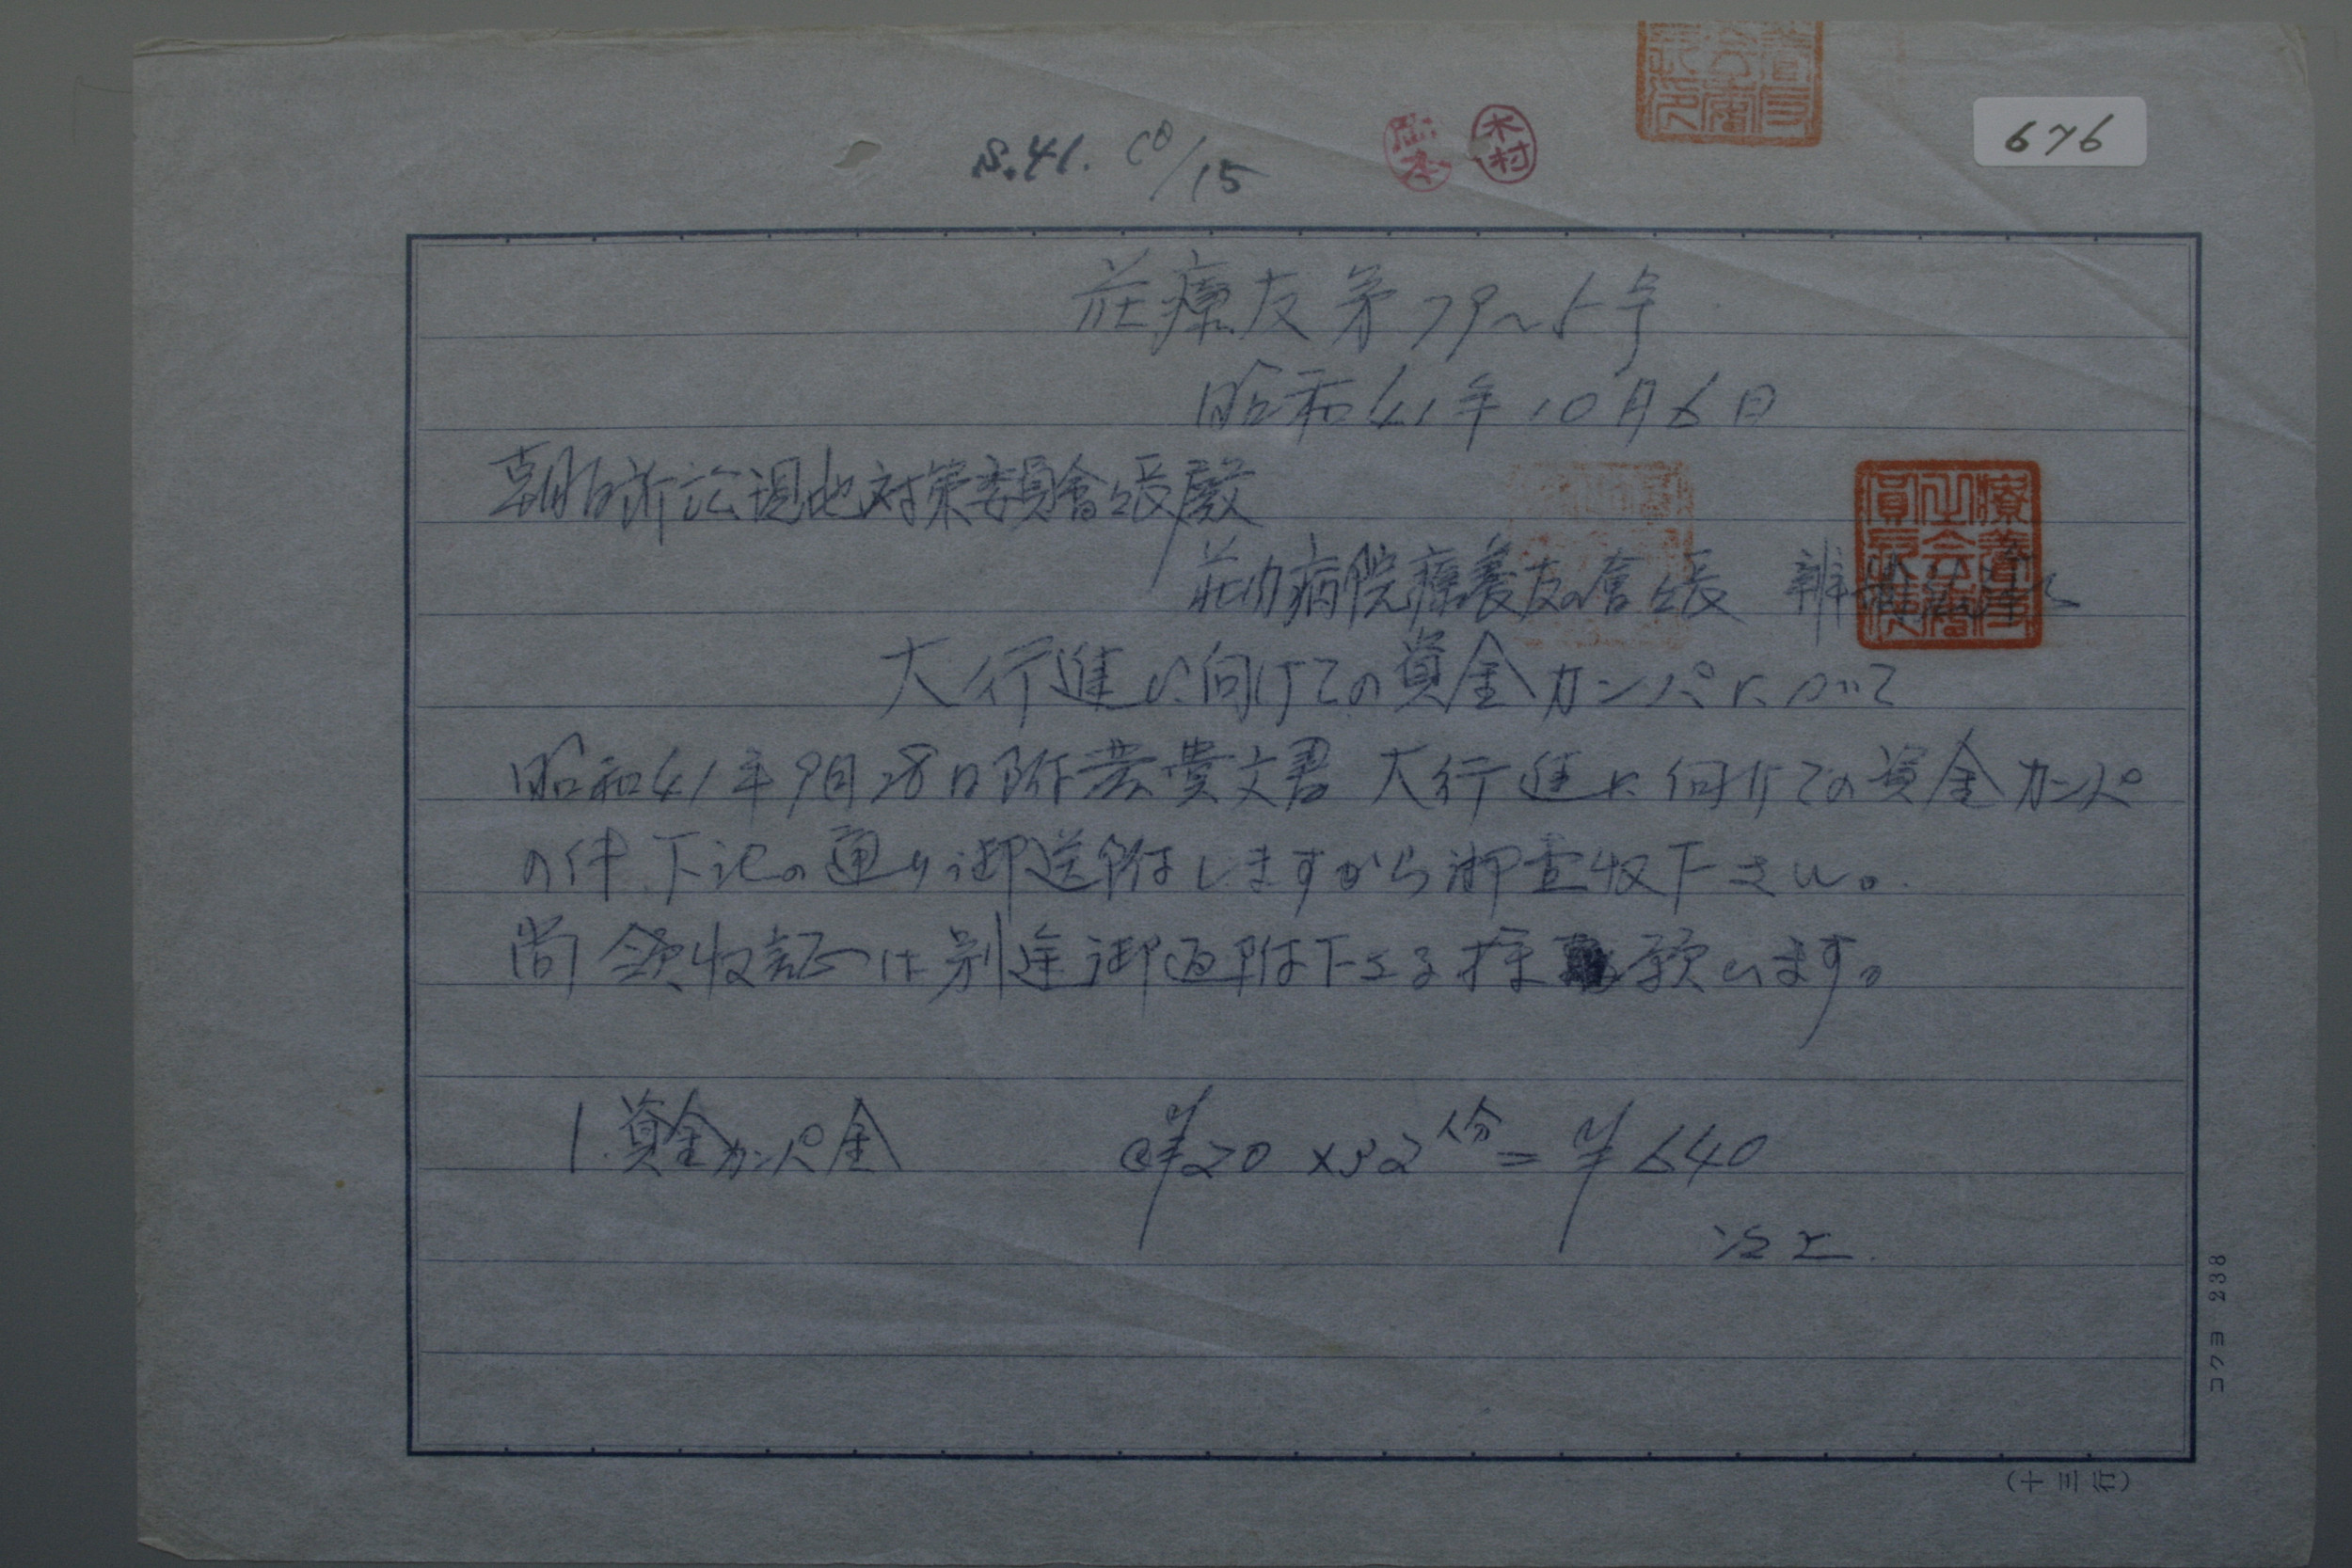 676
S.41. 10/15
木村
荘療友第79〜5号
昭和41年10月6日
朝日訴訟現地対策委員會々長殿
荘内病院療養友の會々長
大行進に向けての資金カンパについて
昭和41年9月28日附貴文書 大行進に向けての資金カンパ
の件、下記の通り御送附しますから御査収下さい。
尚領収証は別途御返附下さる様願います。
1.資金カンパ金 @¥20×32人分=¥640
以上.
コクヨ 238
(十三行)